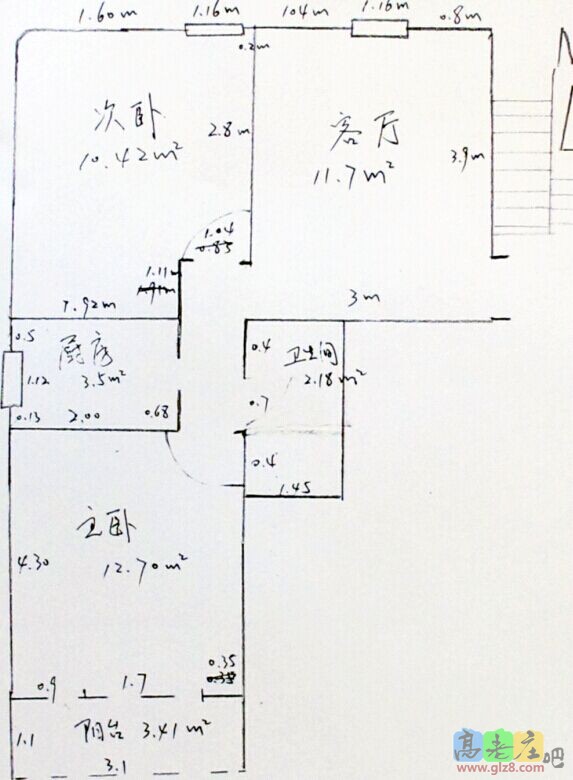 1.60m 1.16m 1.04m 1.16m 0.8m
0.2m
次卧
10.42m²
2.8m
客厅
11.7m²
3.9m
1.04
0.85
1.11m
1.92m
3m
0.5
厨房
3.5m²
1.12
0.13 2.00 0.68
0.4
卫生间
2.18m²
0.7
0.4
1.45
主卧
12.70m²
4.30
0.35
0.9 1.7
阳台 3.41m²
1.1
3.1
高老庄吧
www.glz8.com